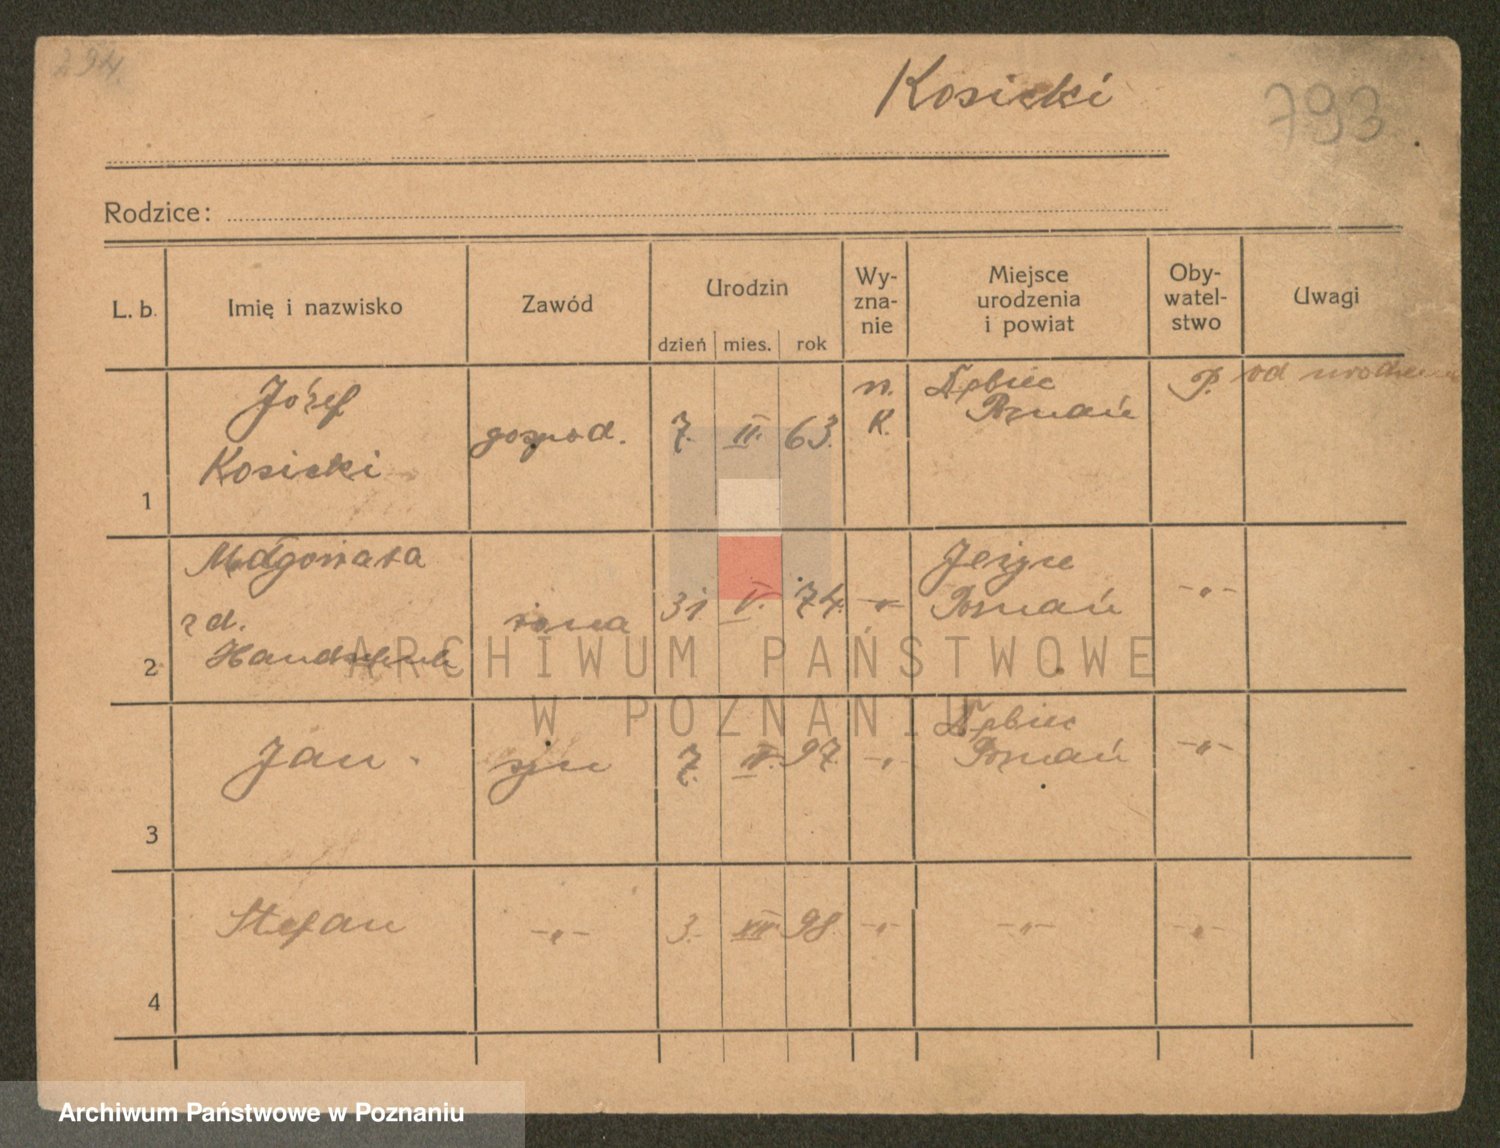 294.
Kosicki
793
Rodzice:
L. b.
Imię i nazwisko
Zawód
Urodzin
dzień mies. rok
Wy-
zna-
nie
Miejsce
urodzenia
i powiat
Oby-
watel-
stwo
Uwagi
1
Józef
Kosicki
gospod.
7. II. 63.
K.
Dębiec
Poznań
P.
od urodzenia
2
Małgorzata
zd.
żona
31 V. 74.
-„-
Jeżyce
Poznań
-„-
3
Jan
syn
7. 97.
-„-
Dębiec
Poznań
-„-
4
Stefan
-„-
3. XII 98
-„-
-„-
-„-
ARCHIWUM PAŃSTWOWE
W POZNANIU
Archiwum Państwowe w Poznaniu